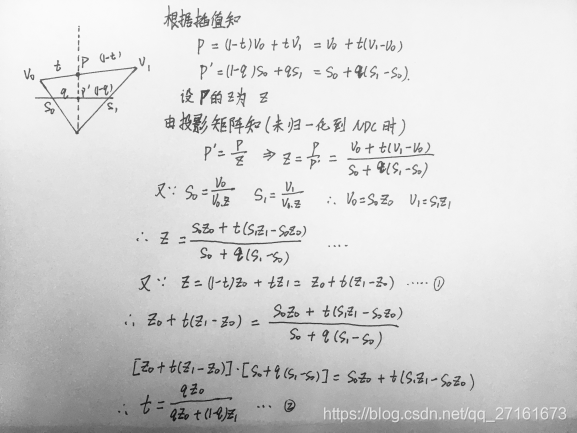 根据插值知
P = (1-t)V₀ + tV₁ = V₀ + t(V₁-V₀)
P' = (1-q)S₀ + qS₁ = S₀ + q(S₁-S₀).
设P的Z为 Z
由投影矩阵知(未归一化到NDC时)
P' = P/Z ⇒ Z = P/P' = (V₀ + t(V₁-V₀))/(S₀ + q(S₁-S₀))
又∵ S₀ = V₀/V₀.Z S₁ = V₁/V₀.Z ∴ V₀=S₀Z₀ V₁=S₁Z₁
∴ Z = (S₀Z₀ + t(S₁Z₁-S₀Z₀))/(S₀ + q(S₁-S₀)) ....
又∵ Z = (1-t)Z₀ + tZ₁ = Z₀ + t(Z₁-Z₀) ..... ①
∴ Z₀ + t(Z₁-Z₀) = (S₀Z₀ + t(S₁Z₁-S₀Z₀))/(S₀ + q(S₁-S₀))
[Z₀ + t(Z₁-Z₀)]·[S₀ + q(S₁-S₀)] = S₀Z₀ + t(S₁Z₁-S₀Z₀)
∴ t = qZ₀/(qZ₀ + (1-q)Z₁) ... ②
V₀ t P (1-t) V₁
S₀ q P' (1-q) S₁
https://blog.csdn.net/qq_27161673